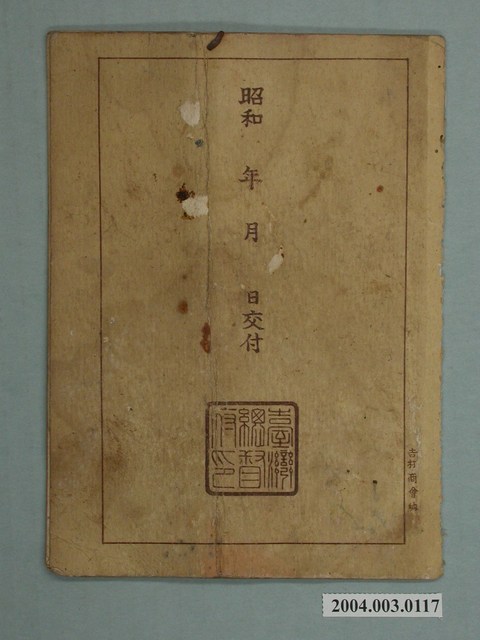 昭和　年　月　日交付
臺灣
總督
府印
吉村商會納
2004.003.0117